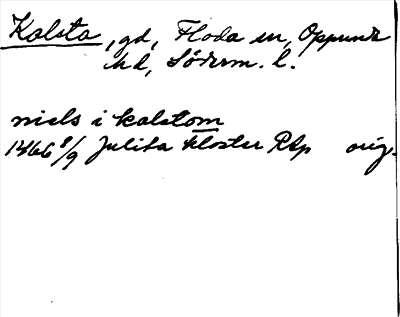 Kalsta, gd, Floda sn, Oppunda
hd, Söderm. l.
niels i kalstom
1466 8/9 Julita kloster RAp orig.